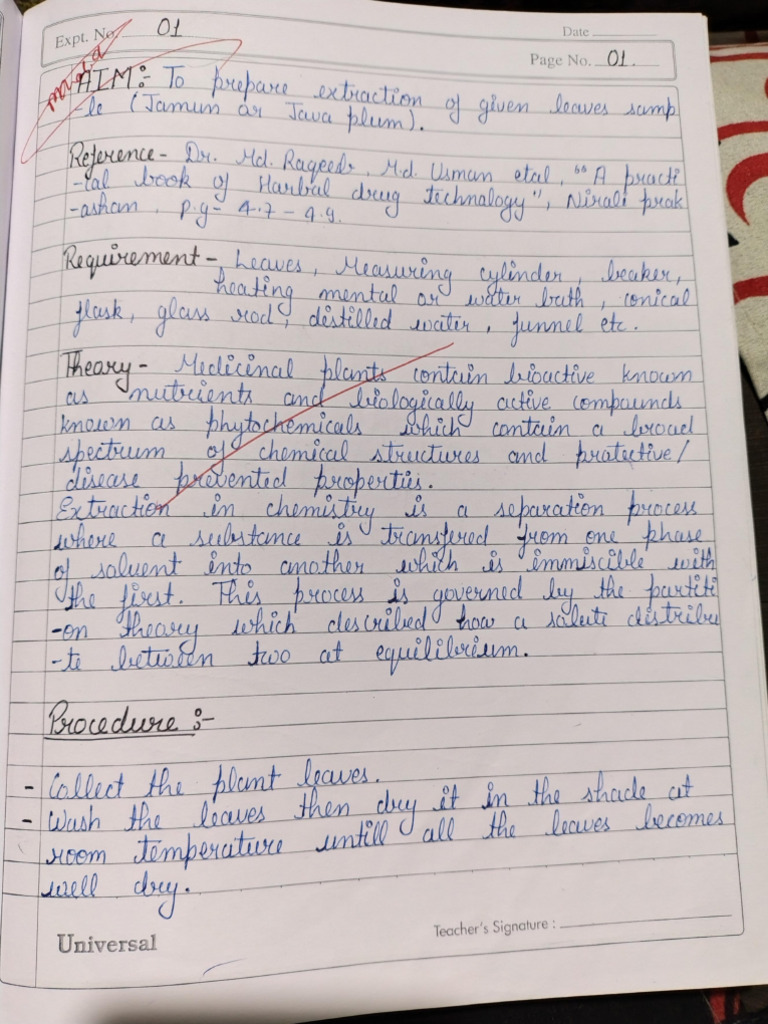 Expt. No. 01
Date
Page No. 01.
AIM:- To prepare extraction of given leaves samp
-le (Jamun or Java plum).
Reference- Dr. Md. Rageeb, Md. Usman etal, "A practi
-cal book of Harbal drug technology", Nirali prak
-ashan, p.g- 4.7 - 4.9.
Requirement- Leaves, Measuring cylinder, beaker,
heating mental or water bath, conical
flask, glass rod, distilled water, funnel etc.
Theory- Medicinal plants contain bioactive known
as nutrients and biologically active compounds
known as phytochemicals which contain a broad
spectrum of chemical structures and protective/
disease prevented properties.
Extraction in chemistry is a separation process
where a substance is transfered from one phase
of solvent into another which is immiscible with
the first. This process is governed by the partiti
-on theory which described how a solute distribu
-te between two at equilibrium.
Procedure :-
- Collect the plant leaves.
- Wash the leaves then dry it in the shade at
room temperature untill all the leaves becomes
well dry.
Teacher's Signature :
Universal